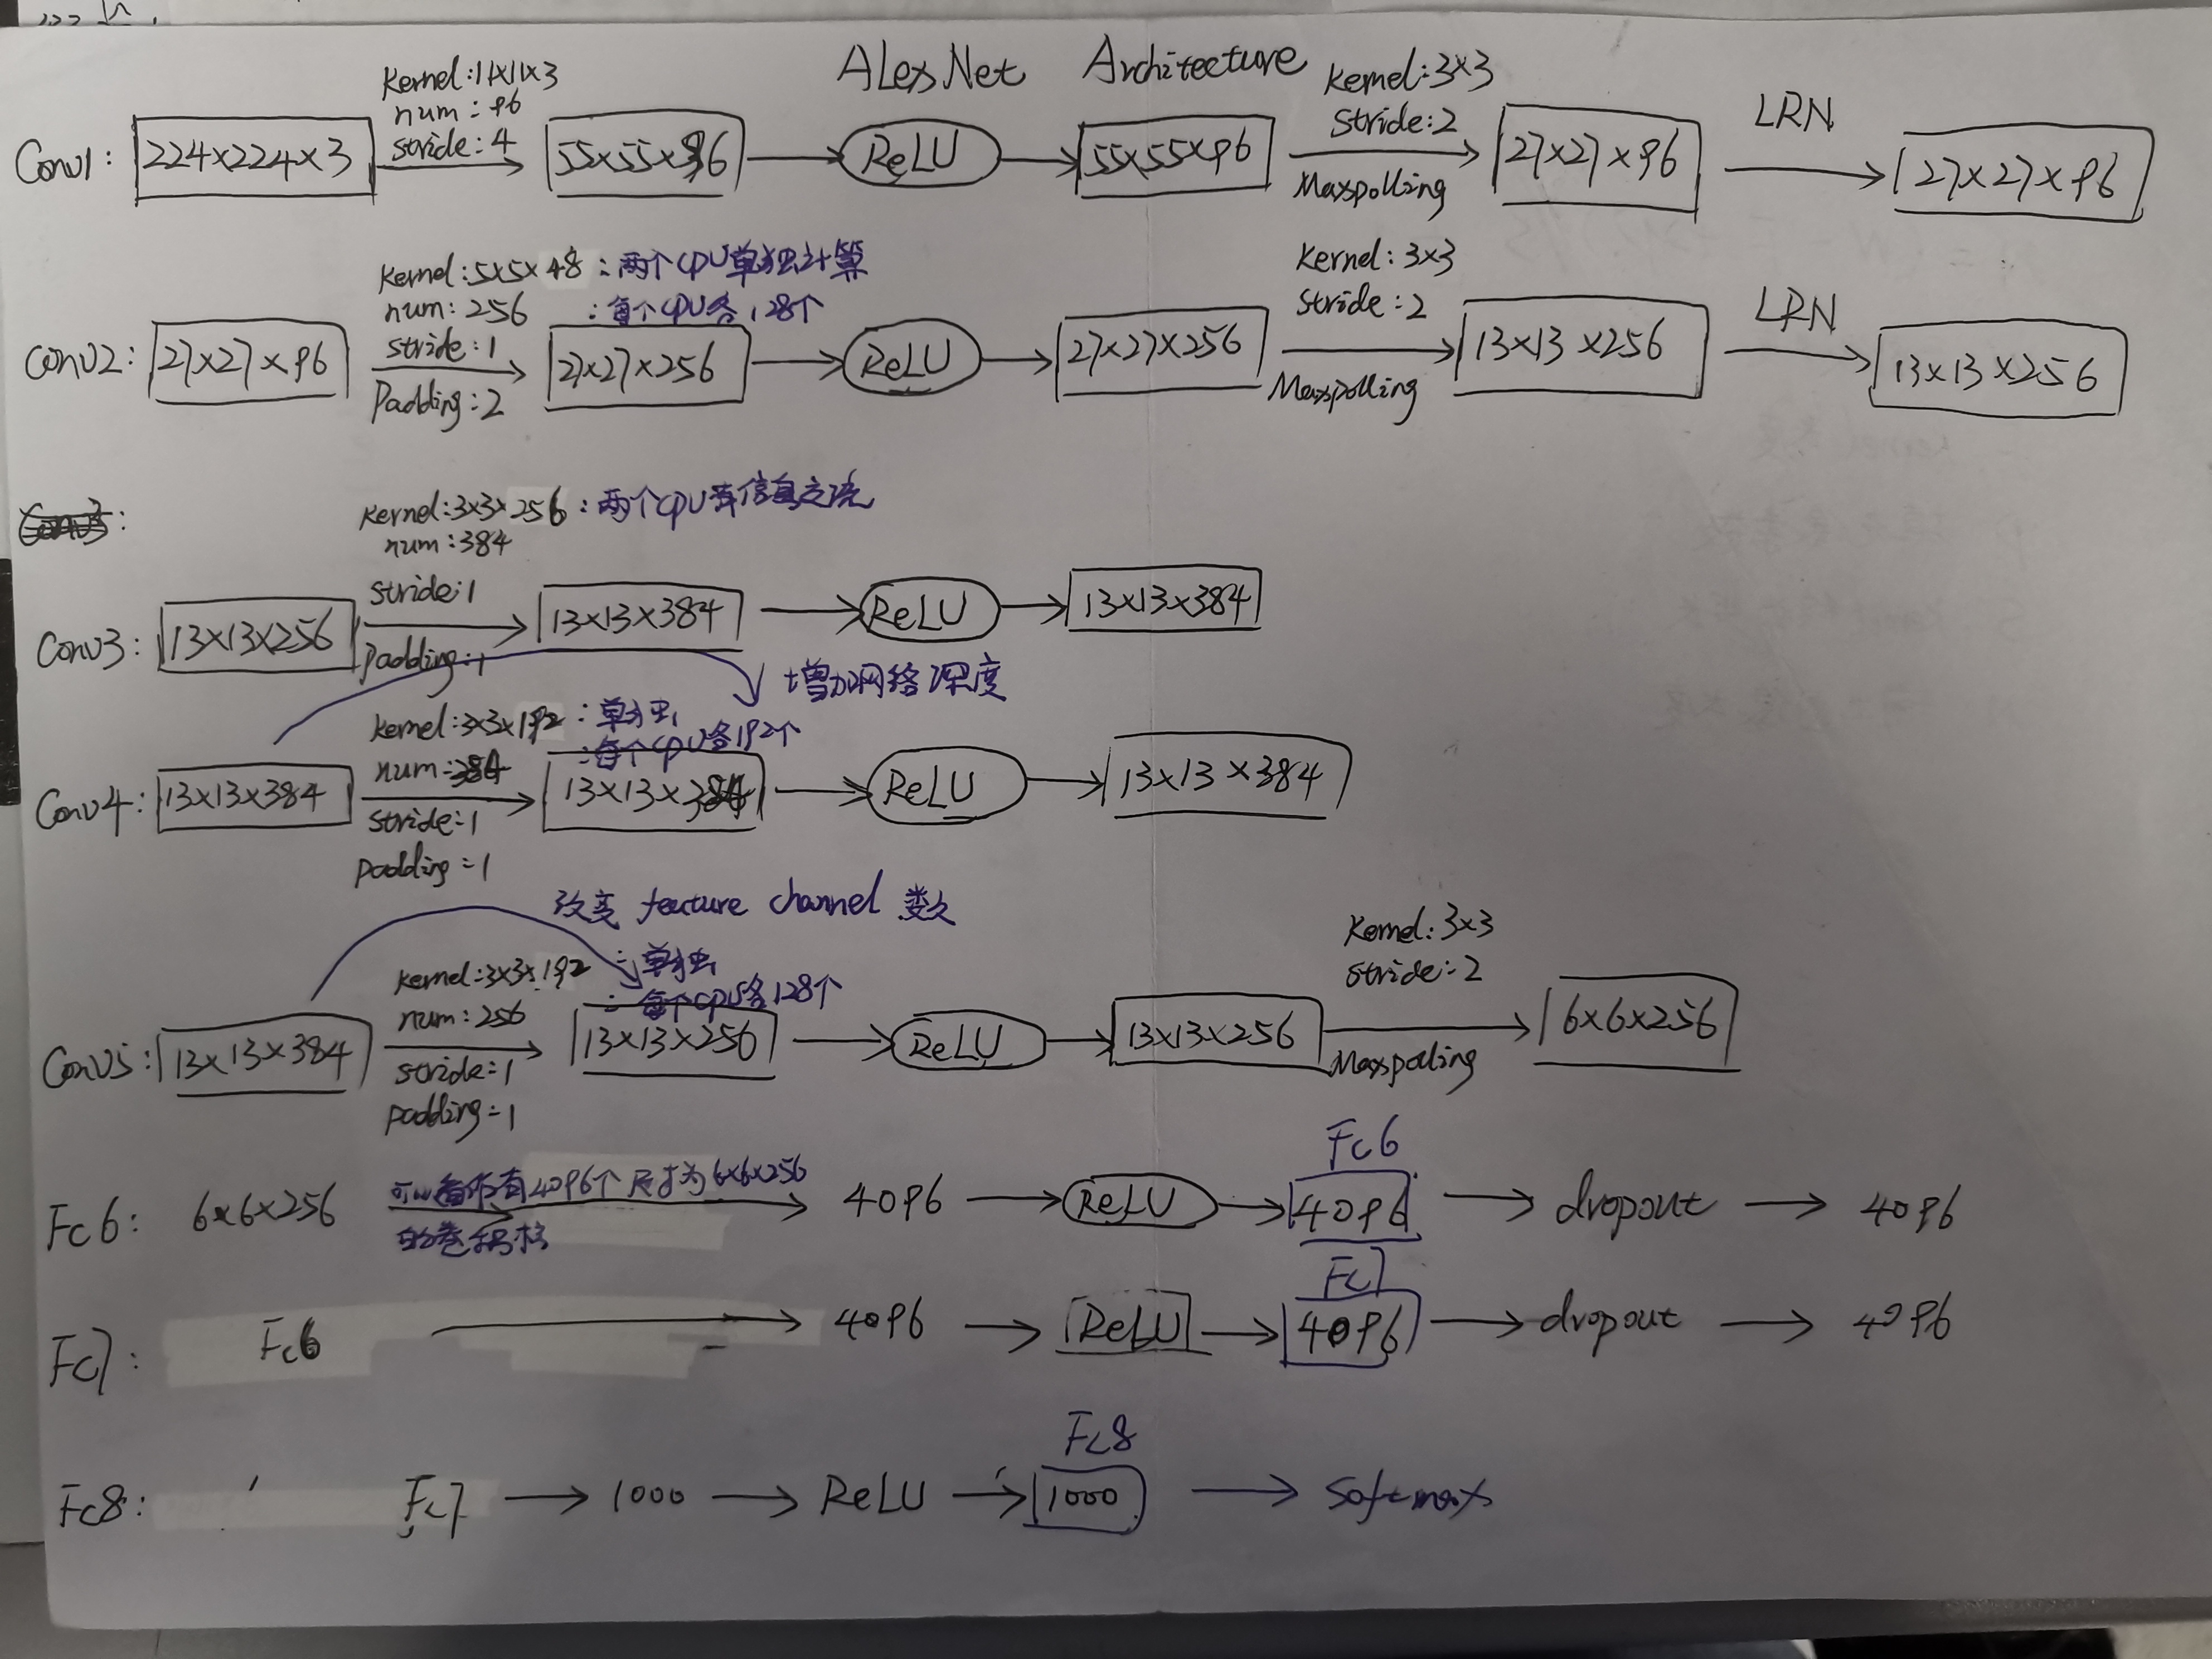 ALexNet Architecture
Kernel:11x11x3
num:96
stride:4
Conv1: 224x224x3 55x55x96 ReLU 55x55x96
Kernel:3x3
Stride:2
Maxpolling
27x27x96
LRN
27x27x96
Kernel:5x5x48:两个CPU单独计算
num:256 :每个CPU各128个
stride:1
Padding:2
Conv2: 27x27x96 27x27x256 ReLU 27x27x256
Kernel:3x3
Stride:2
Maxpolling
13x13x256
LRN
13x13x256
Conv3:
Kernel:3x3x256:两个CPU有信息交流
num:384
stride:1
Padding:1
Conv3: 13x13x256 13x13x384 ReLU 13x13x384
增加网络深度
Kernel:3x3x192:单独
num:384 :每个CPU各192个
stride:1
padding=1
Conv4: 13x13x384 13x13x384 ReLU 13x13x384
改变 feature channel 数
Kernel:3x3x192 :单独
num:256 :每个CPU各128个
stride:1
padding=1
Conv5: 13x13x384 13x13x256 ReLU 13x13x256
Kernel:3x3
stride:2
Maxpolling
6x6x256
Fc6
可以看作有4096个尺寸为6x6x256
的卷积核
Fc6: 6x6x256 4096 ReLU 4096 dropout 4096
Fc7
Fc7: Fc6 4096 ReLU 4096 dropout 4096
Fc8
Fc8: Fc7 1000 ReLU 1000 Softmax